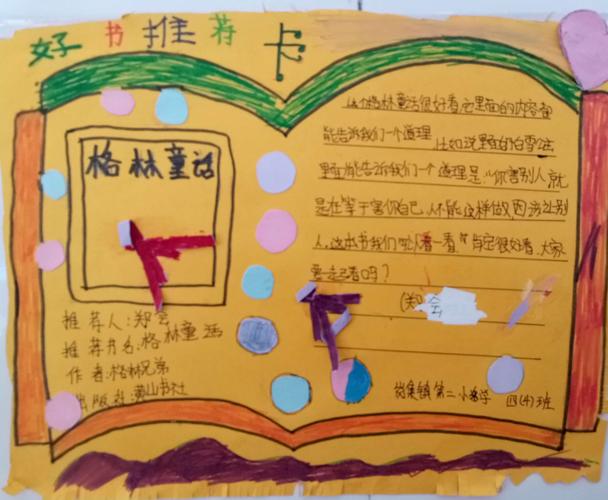 好书推荐卡
格林童话
推荐人:郑会
推荐书名:格林童话
作者:格林兄弟
出版社:黄山书社
这个格林童话很好看,它里面的内容都
能告诉我们一个道理 比如说里面的白雪公
里面能告诉我们一个道理是:“你害别人就
是在等于害你自己,人不能这样做,因为让别
人,这本书我们可以看一看,肯定很好看,大家
要一起看吗?
会
岗集镇第二小学 四(4)班